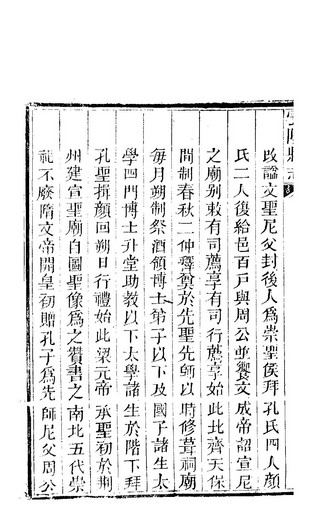 改諡文聖尼父封後人爲崇聖侯拜孔氏四人顏
氏二人後給邑百戶與周公並饗文成帝詔宣尼
之廟別敕有司薦享有司行薦享始此北齊天保
間制春秋二仲釋奠於先聖先師以時修葺祠廟
每月朔制祭酒領博士弟子以下及國子諸生太
學四門博士升堂助敎以下太學諸生於階下拜
孔聖揖顏回朔日行禮始此梁元帝承聖初於荆
州建宣聖廟自圖聖像爲之贊書之南北五代崇
祀不廢隋文帝開皇初贈孔子爲先師尼父周公